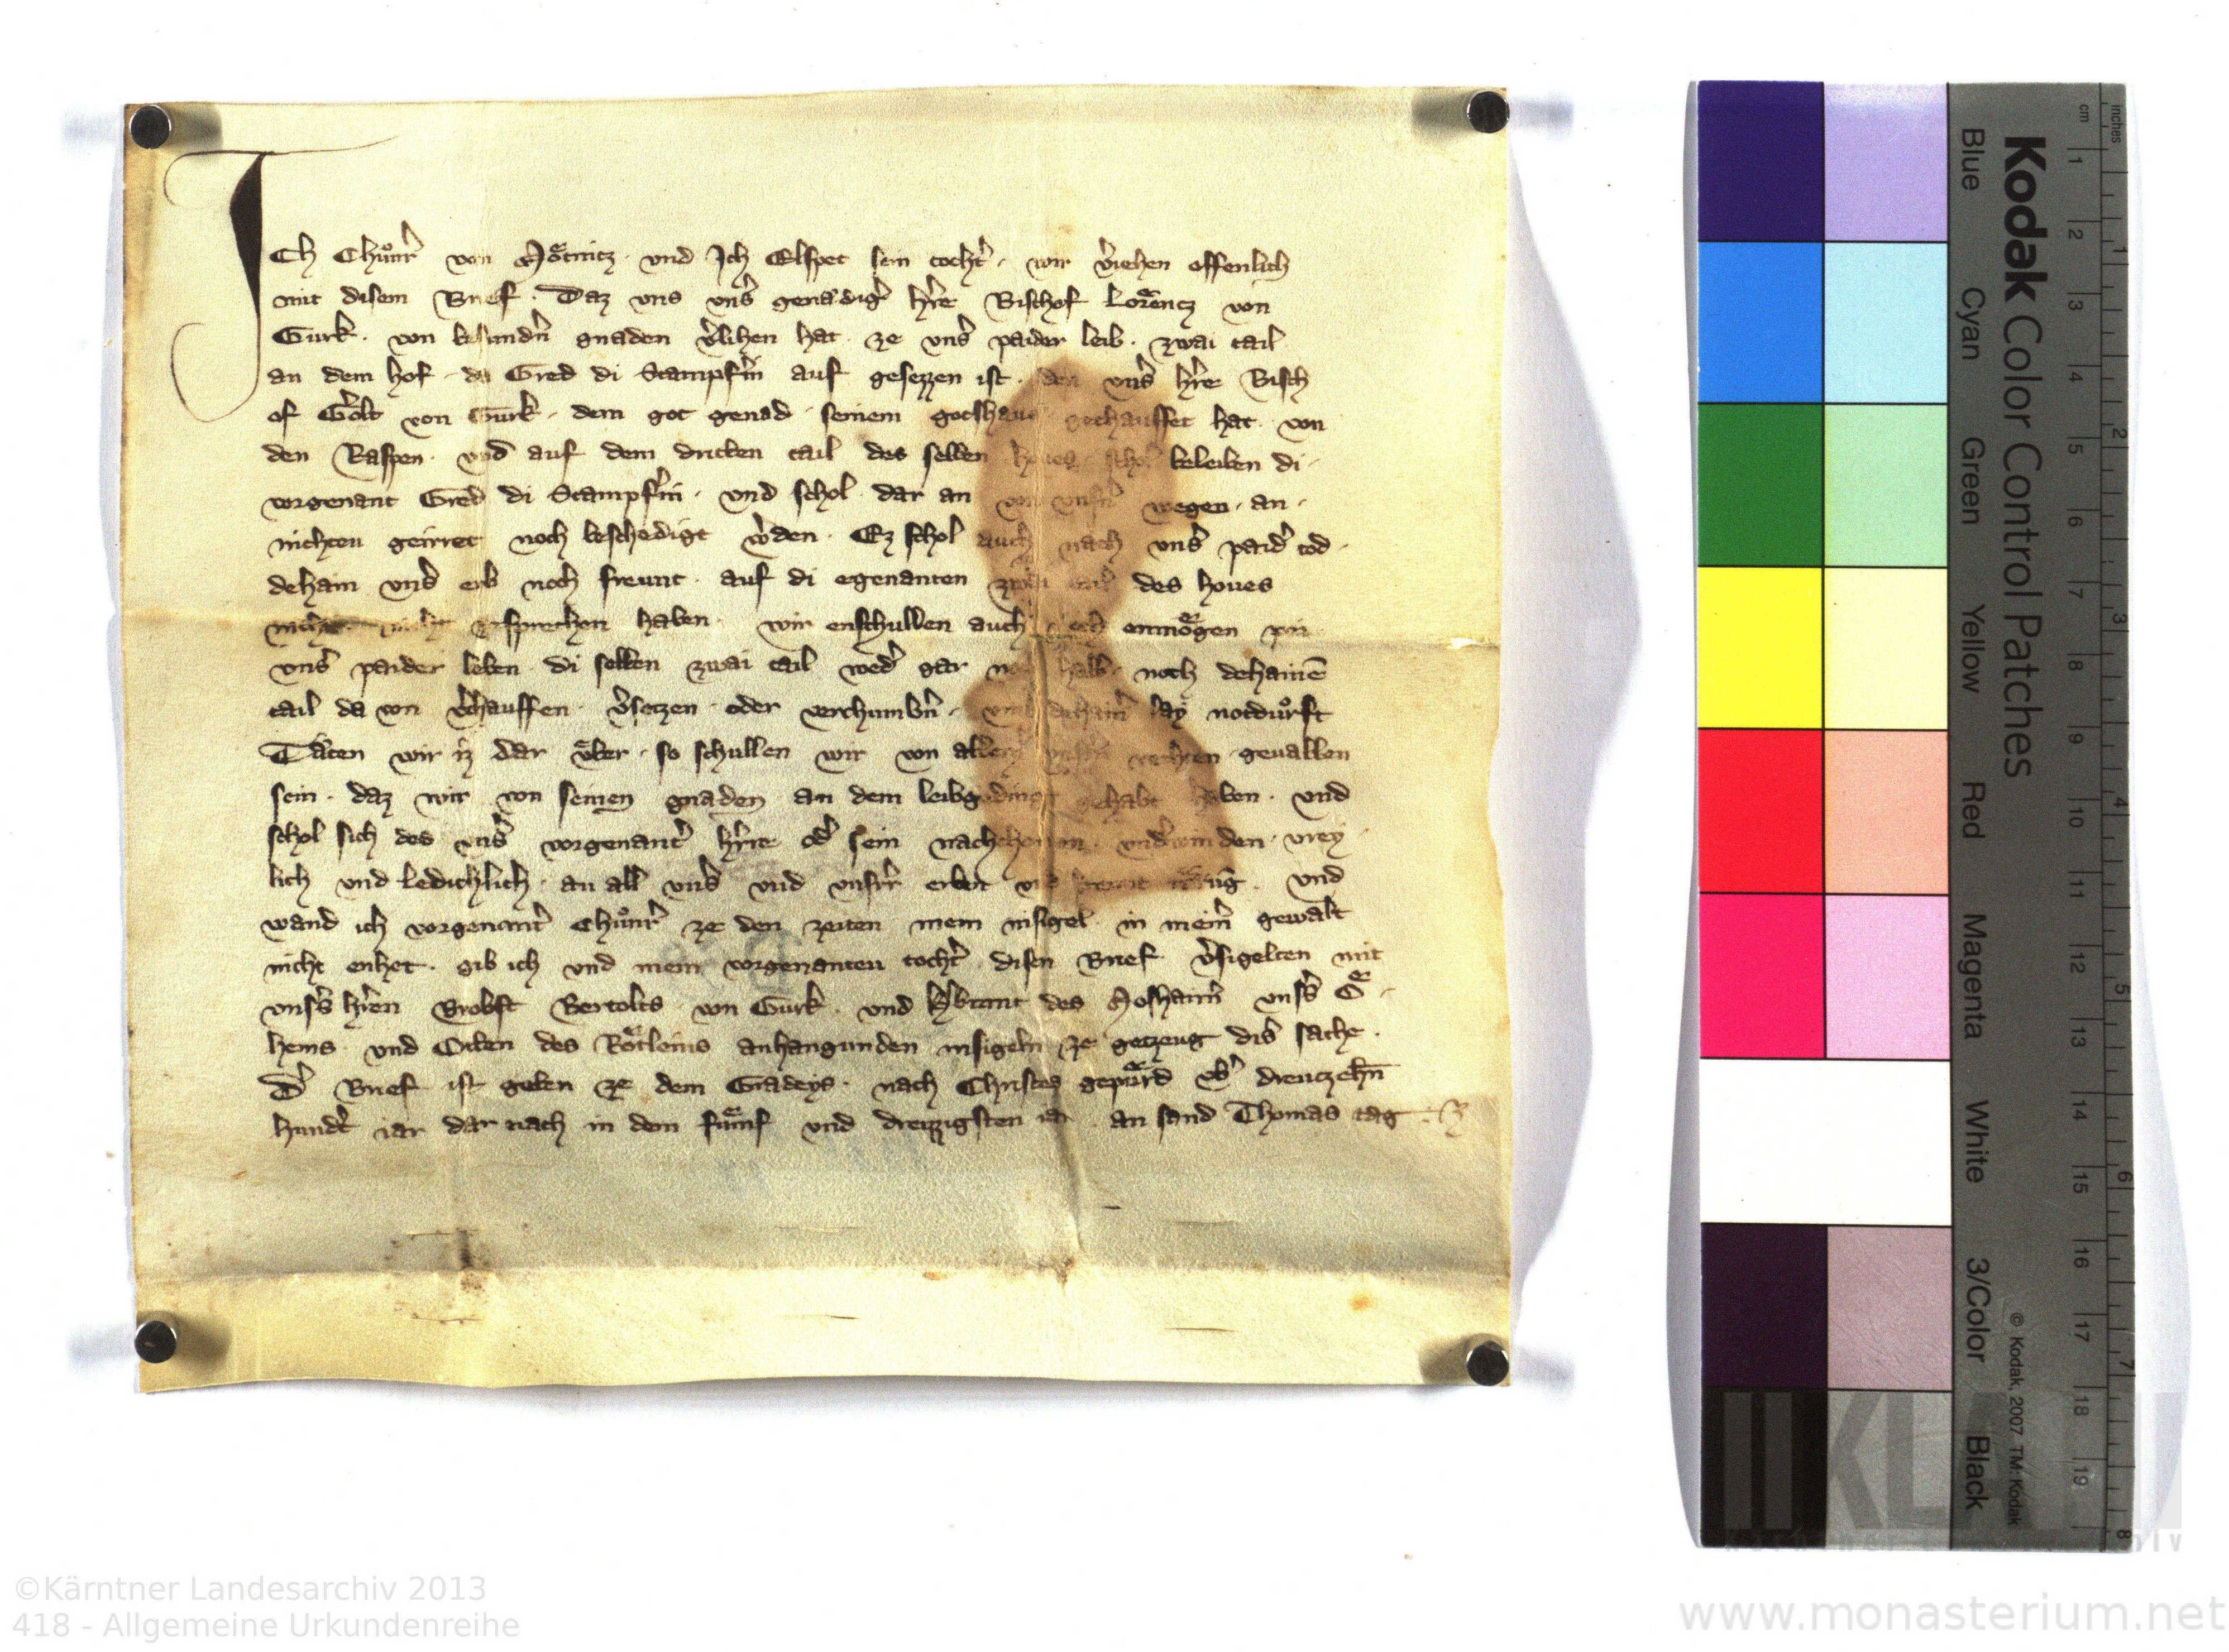 Ich Chuͦnr̄ von Moͤtnitz · und Ich Elspet sein tocht̾ · wir v̾iehen offenlich
mit disem Brief · Daz uns uns̾ genaͤdig̾ h̾re Bischof Lorentz von
Gurk · von besundn̾ gnaden v̾lihen hat · ze uns̾ paider leib · zwai tail
an dem hof · da Gred di Stampf̾in auf gesezzen ist · den uns̾ h̾re Bisch
of G̾olt von Gurk · dem got genad · seinem gotshaus hat · von
den Raspen · und auf dem dritten tail des selben houes schol beleiben di ·
vorgenant Gred di Stampf̾in · und schol dar an von unsn̾ wegen · an ·
nichteu geirret noch beschedigt w̾den · Ez schol auch nach uns̾ paid̾ tod ·
dehain uns̾ erb noch freunt · auf di egenanten zwai tail des houes
nicht haben · wir enschullen auch noch enmoͤgen pei
uns̾ paider leben · di selben zwai tail wed̾ gar noch halb · noch dehainē
tail da von v̾chauffen · v̾setzen · oder verchumbn̾ · umb dehain̾ lay notduͦrft
Taͤten wir iz dar uͤber · so schullen wir von allen unsn̾ rechten · geuallen
sein · daz wir von seinen gnaden an dem leibgeding gehabt haben · und
schol sich des uns̾ vorgenant̾ h̾rre od̾ sein nachchomen · und̾winden · vrey ·
lich und ledichlich · an all uns̾ und unsrr̾ erben und irrūg · und
wand ich vorgenant̾ Chuͦnr̾ ze den zeiten mein insigel · in mein̾ gewalt
nicht enhet · gib ich und mein vorgenanteu tocht̾ disen Brief v̾sigelten mit
unss̾ h̾ren Brobst Bertolts · von Gurk · und des Moshaim̾ unss̾ Oͤ ·
hems · und Otten des Roͤtleins anhangunden insigeln ze getzeug dis̾ sache ·
D̾ Brief ist geben ze dem Gradeys · nach Christes gepuͤrd ub̾ dreutzehn̄
hund̾t iar dar nach in dem fuͤmf und dreizzigsten iar · an sand Thomas tag ·
Kodak Color Control Patches
inches
cm
1 2 3 4 5 6 7 8 9 10 11 12 13 14 15 16 17 18 19
1 2 3 4 5 6 7 8
Blue Cyan Green Yellow Red Magenta White 3/Color Black
© Kodak, 2007 TM: Kodak
©Kärntner Landesarchiv 2013
418 - Allgemeine Urkundenreihe
www.monasterium.net